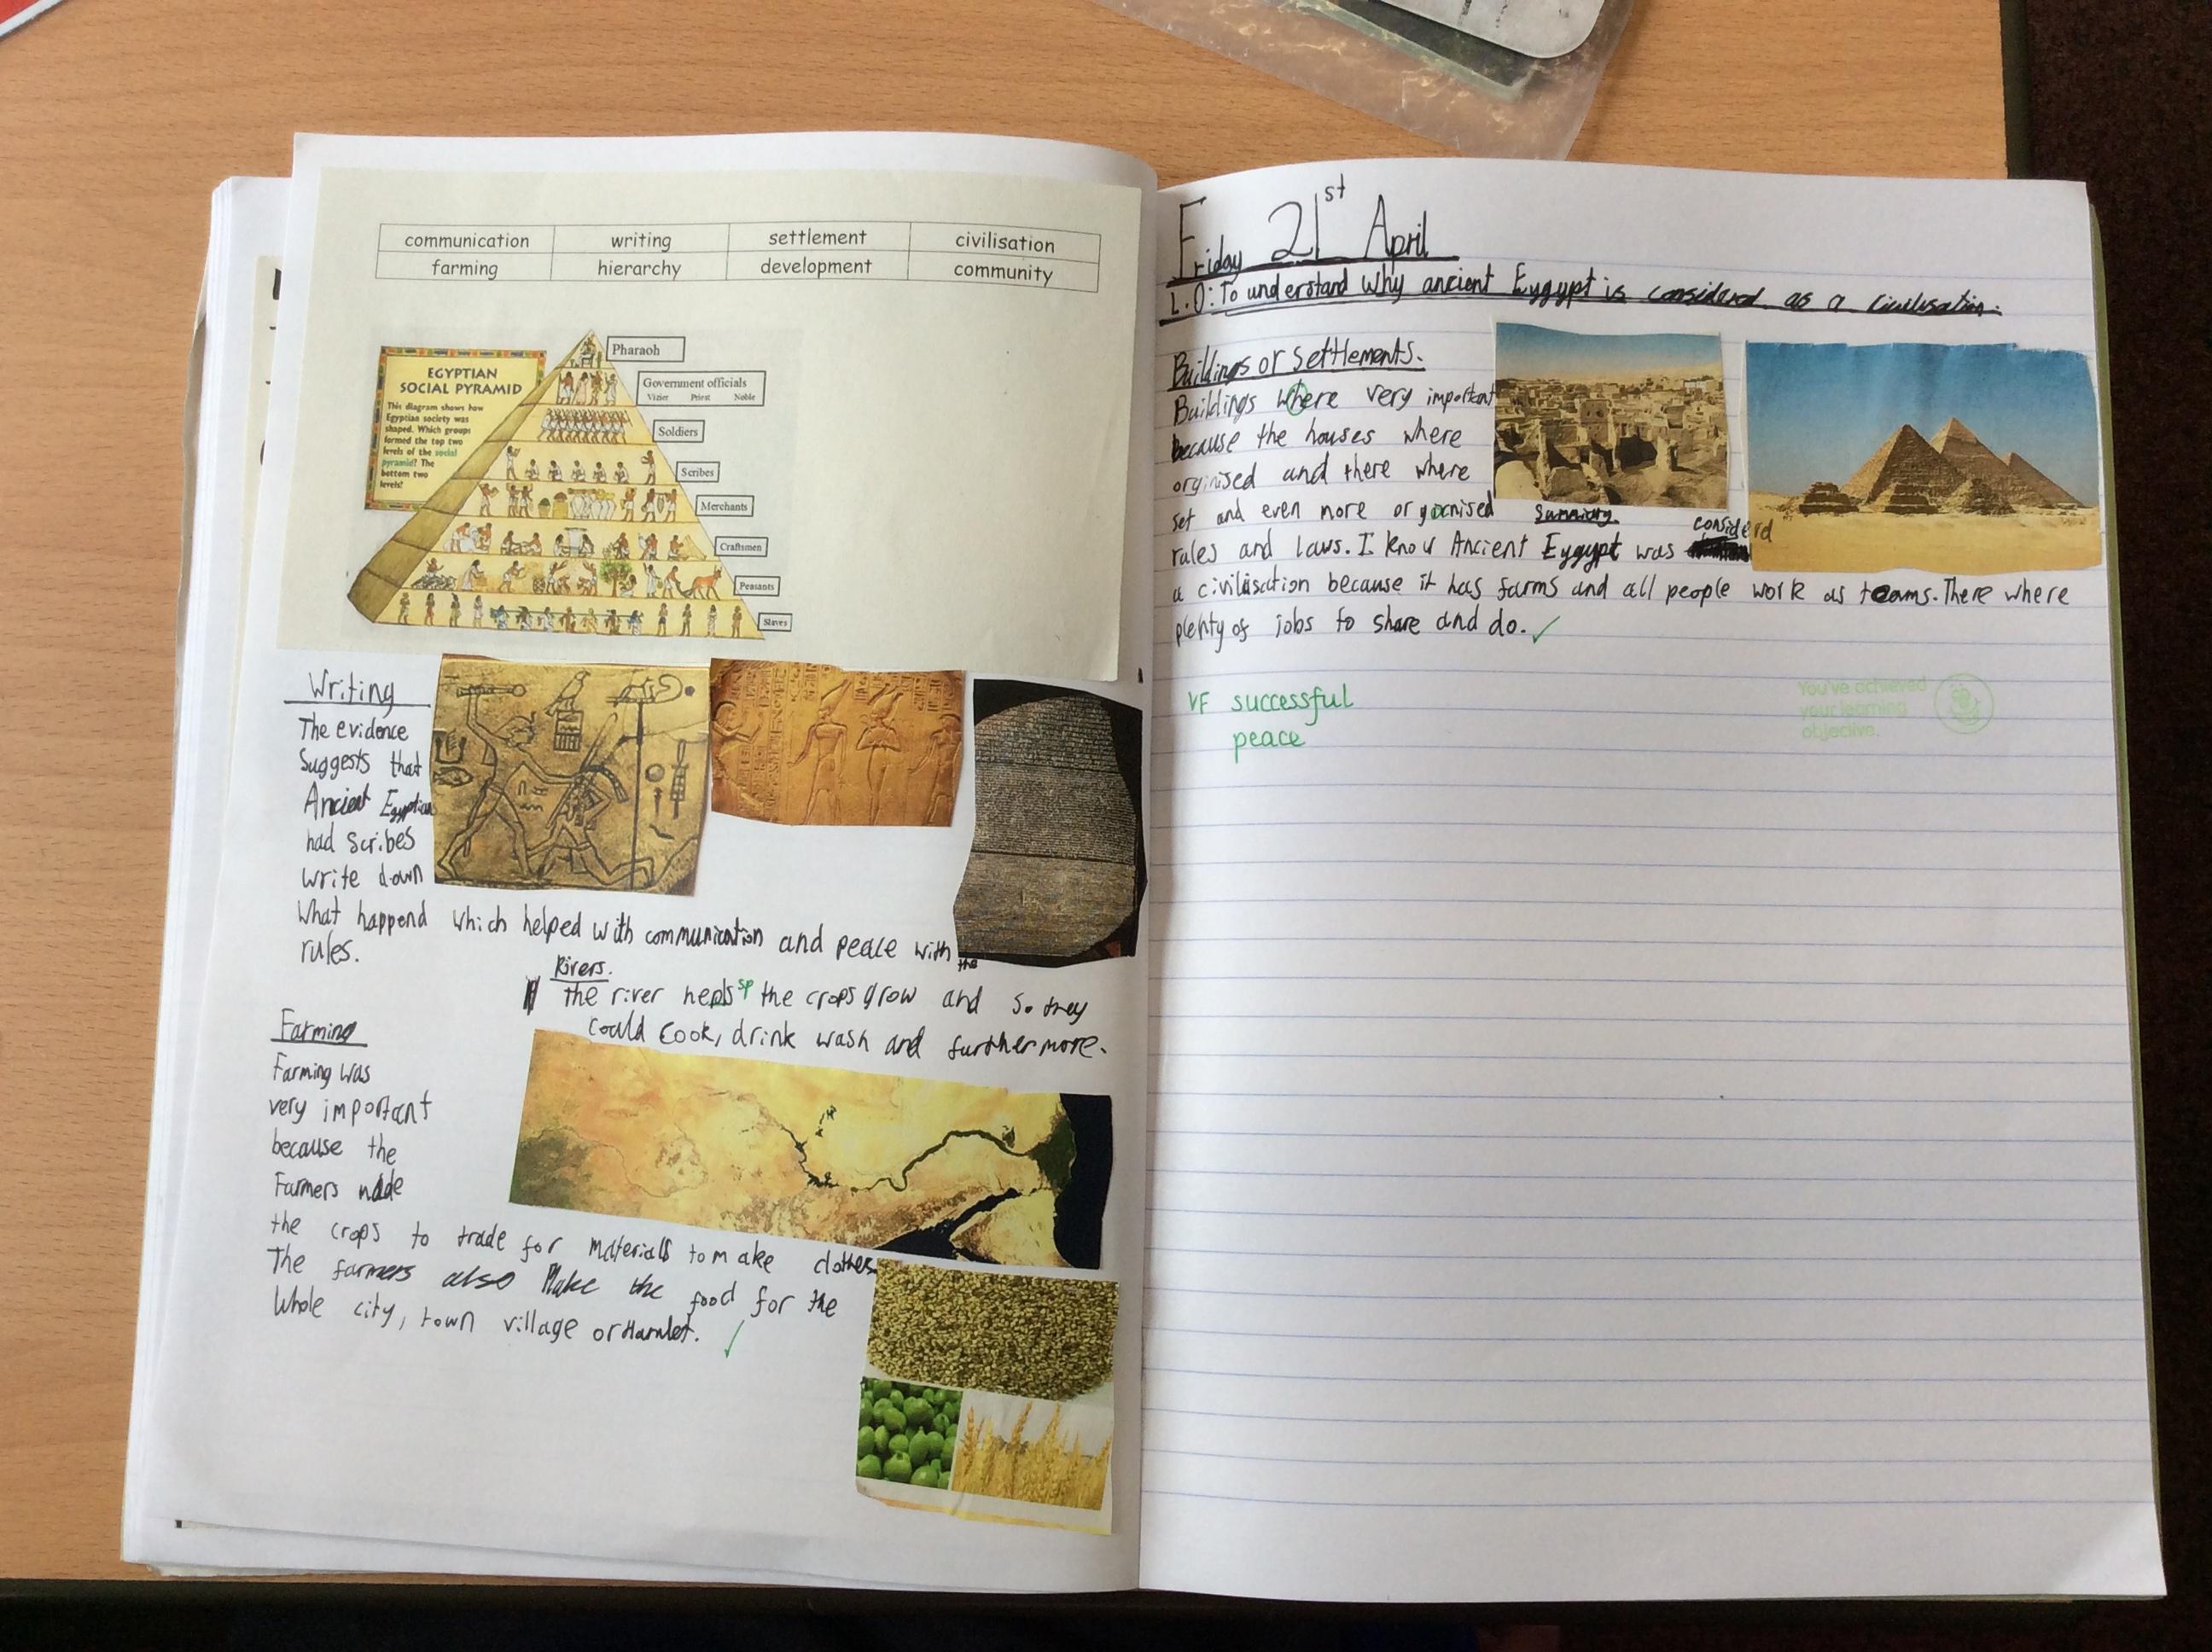 communication writing settlement civilisation
farming hierarchy development community
EGYPTIAN
SOCIAL PYRAMID
This diagram shows how
Egyptian society was
shaped. Which groups
formed the top two
levels of the social
pyramid? The
bottom two
levels?
Pharaoh
Government officials
Vizier Priest Noble
Soldiers
Scribes
Merchants
Craftsmen
Peasants
Slaves
Writing
The evidence
Suggests that
Ancient Egyptian
had scribes
write down
What happend which helped with communication and peace with the
rules.
Rivers.
the river helps sp the crops grow and so they
could cook, drink wash and furthermore.
Farming
Farming was
very important
because the
Farmers made
the crops to trade for materials to make clothes.
The farmers also Make the food for the
Whole city, town village or Hamlet.
Friday 21st April
L.O: To understand why ancient Eygypt is considered as a civilisation.
Buildings or settlements.
Buildings where very important
because the houses where
orginised and there where
set and even more organised
Summary.
considerd
rules and laws. I know Ancient Eygypt was
a civilisation because it has farms and all people work as teams. There where
plenty of jobs to share and do.
VF successful
peace
You've achieved
your learning
objective.